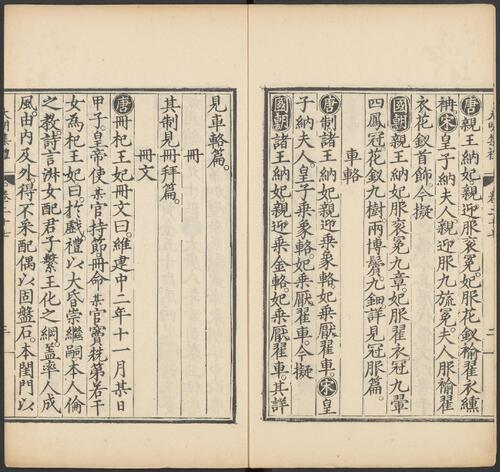 唐親王納妃親迎服袞冕。妃服花釵褕翟衣纁
袡宋皇子納夫人親迎服九旒冕。夫人服褕翟
衣花釵首飾。今擬
國朝諸王納妃服袞冕九章。妃服翟衣冠九翬
四鳳冠花釵九樹。兩博鬢。九鈿詳見冠服篇。
車輅
唐制諸王納妃親迎乘象輅。妃乘厭翟車。宋皇
子納夫人。皇子乘象輅。妃乘厭翟車。今擬
國朝諸王納妃親迎乘金輅。妃乘厭翟車。其詳
見車輅篇。
冊
其制見冊拜篇。
冊文
唐冊杞王妃冊文曰。維建中二年十一月某日
甲子。皇帝使某官持節冊命某官竇稅第若干
女為杞王妃曰。於戲。禮以大昏崇繼嗣本人倫
之教。詩言淑女配君子繫王化之綱。蓋率人成
風。由內及外。得不釆配偶以固盤石。本閨門以
大明集禮
卷二十七
三